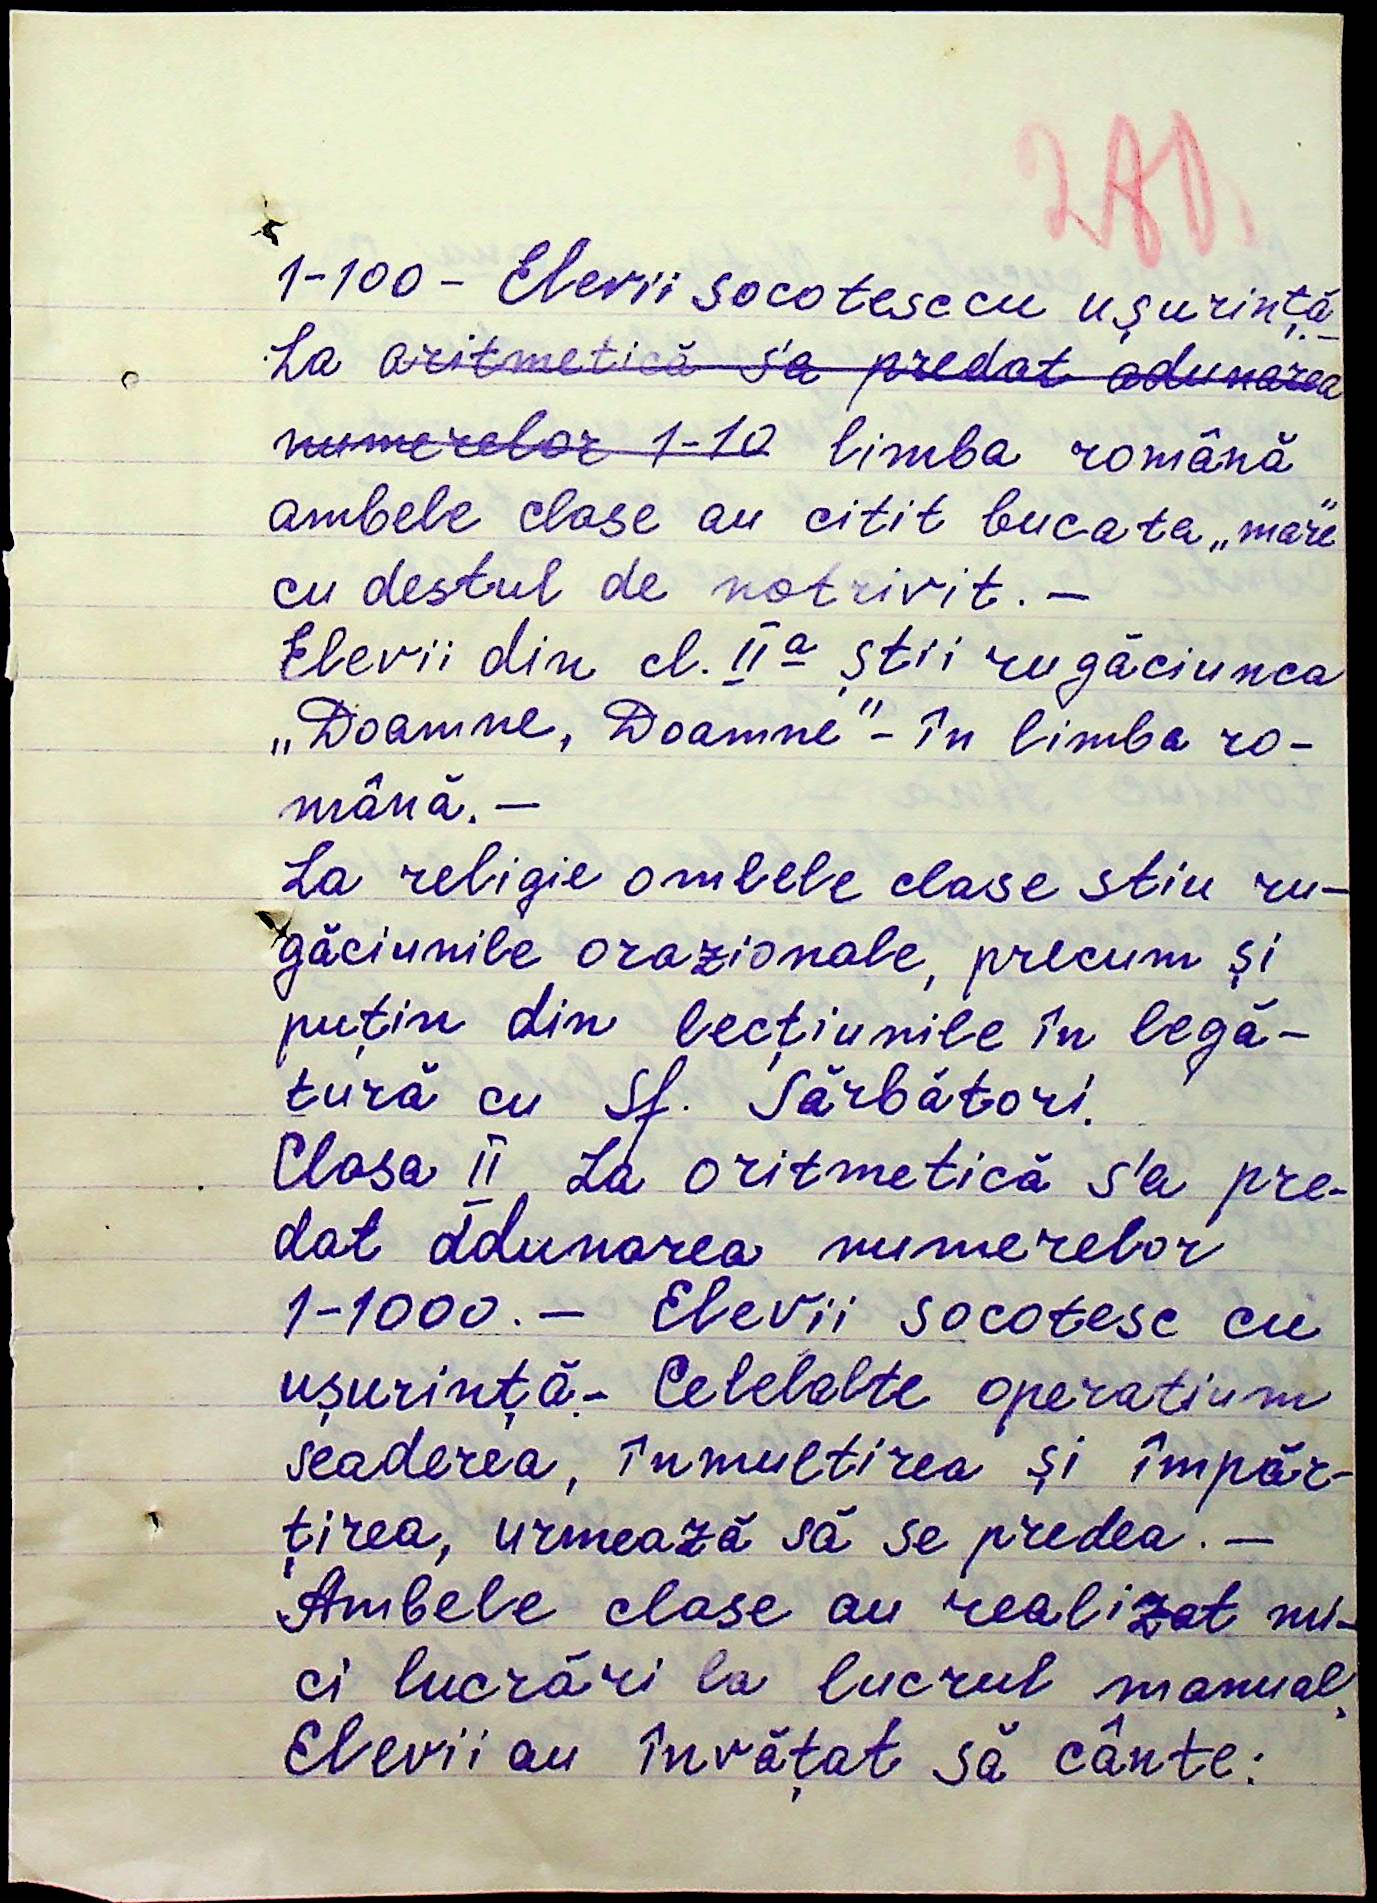 280.
1-100 - Elevii socotesc cu uşurinţă.-
La aritmetică s'a predat adunarea
numerelor 1-10 limba română
ambele clase au citit bucata „mare"
cu destul de notrivit. —
Elevii din cl. IIa ştii rugăciunea
„Doamne, Doamne" - în limba ro-
mână. —
La religie ambele clase stiu ru-
găciunile orazionale, precum şi
puţin din lecţiunile în legă-
tură cu Sf. Sărbători.
Clasa II La aritmetică s'a pre-
dat adunarea numerelor
1-1000. — Elevii socotesc cu
uşurinţă.- Celelalte operatiuni
scaderea, înmultirea şi împăr-
ţirea, urmează să se predea. —
Ambele clase au realizat mi-
ci lucrări la lucrul manual,
Elevii au învăţat să cânte: